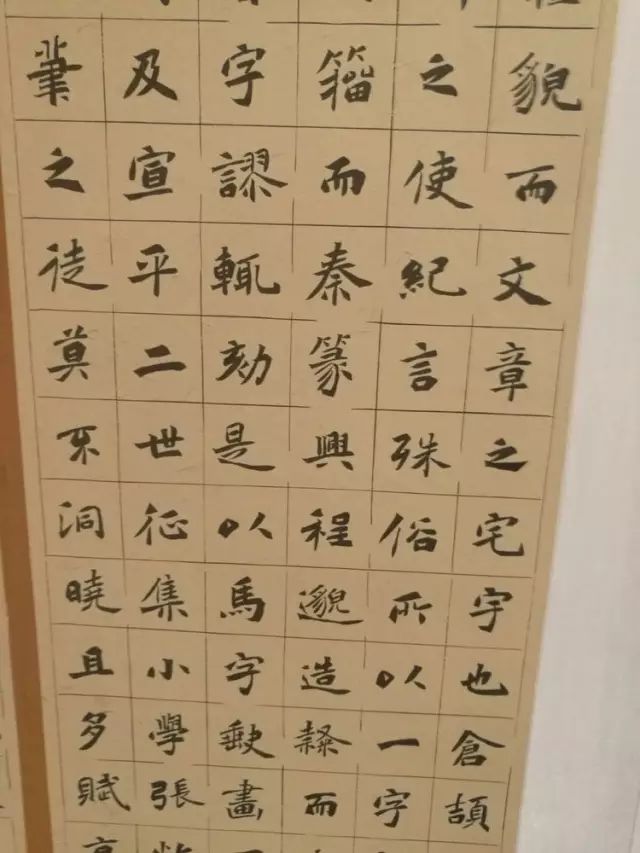 貌而文章之宅宇也倉頡
之使紀言殊俗所以一字
籀而秦篆興程邈造隸而
字謬輒劾是以馬字缺畫
及宣平二世征集小學張
筆之徒莫不洞曉且多賦